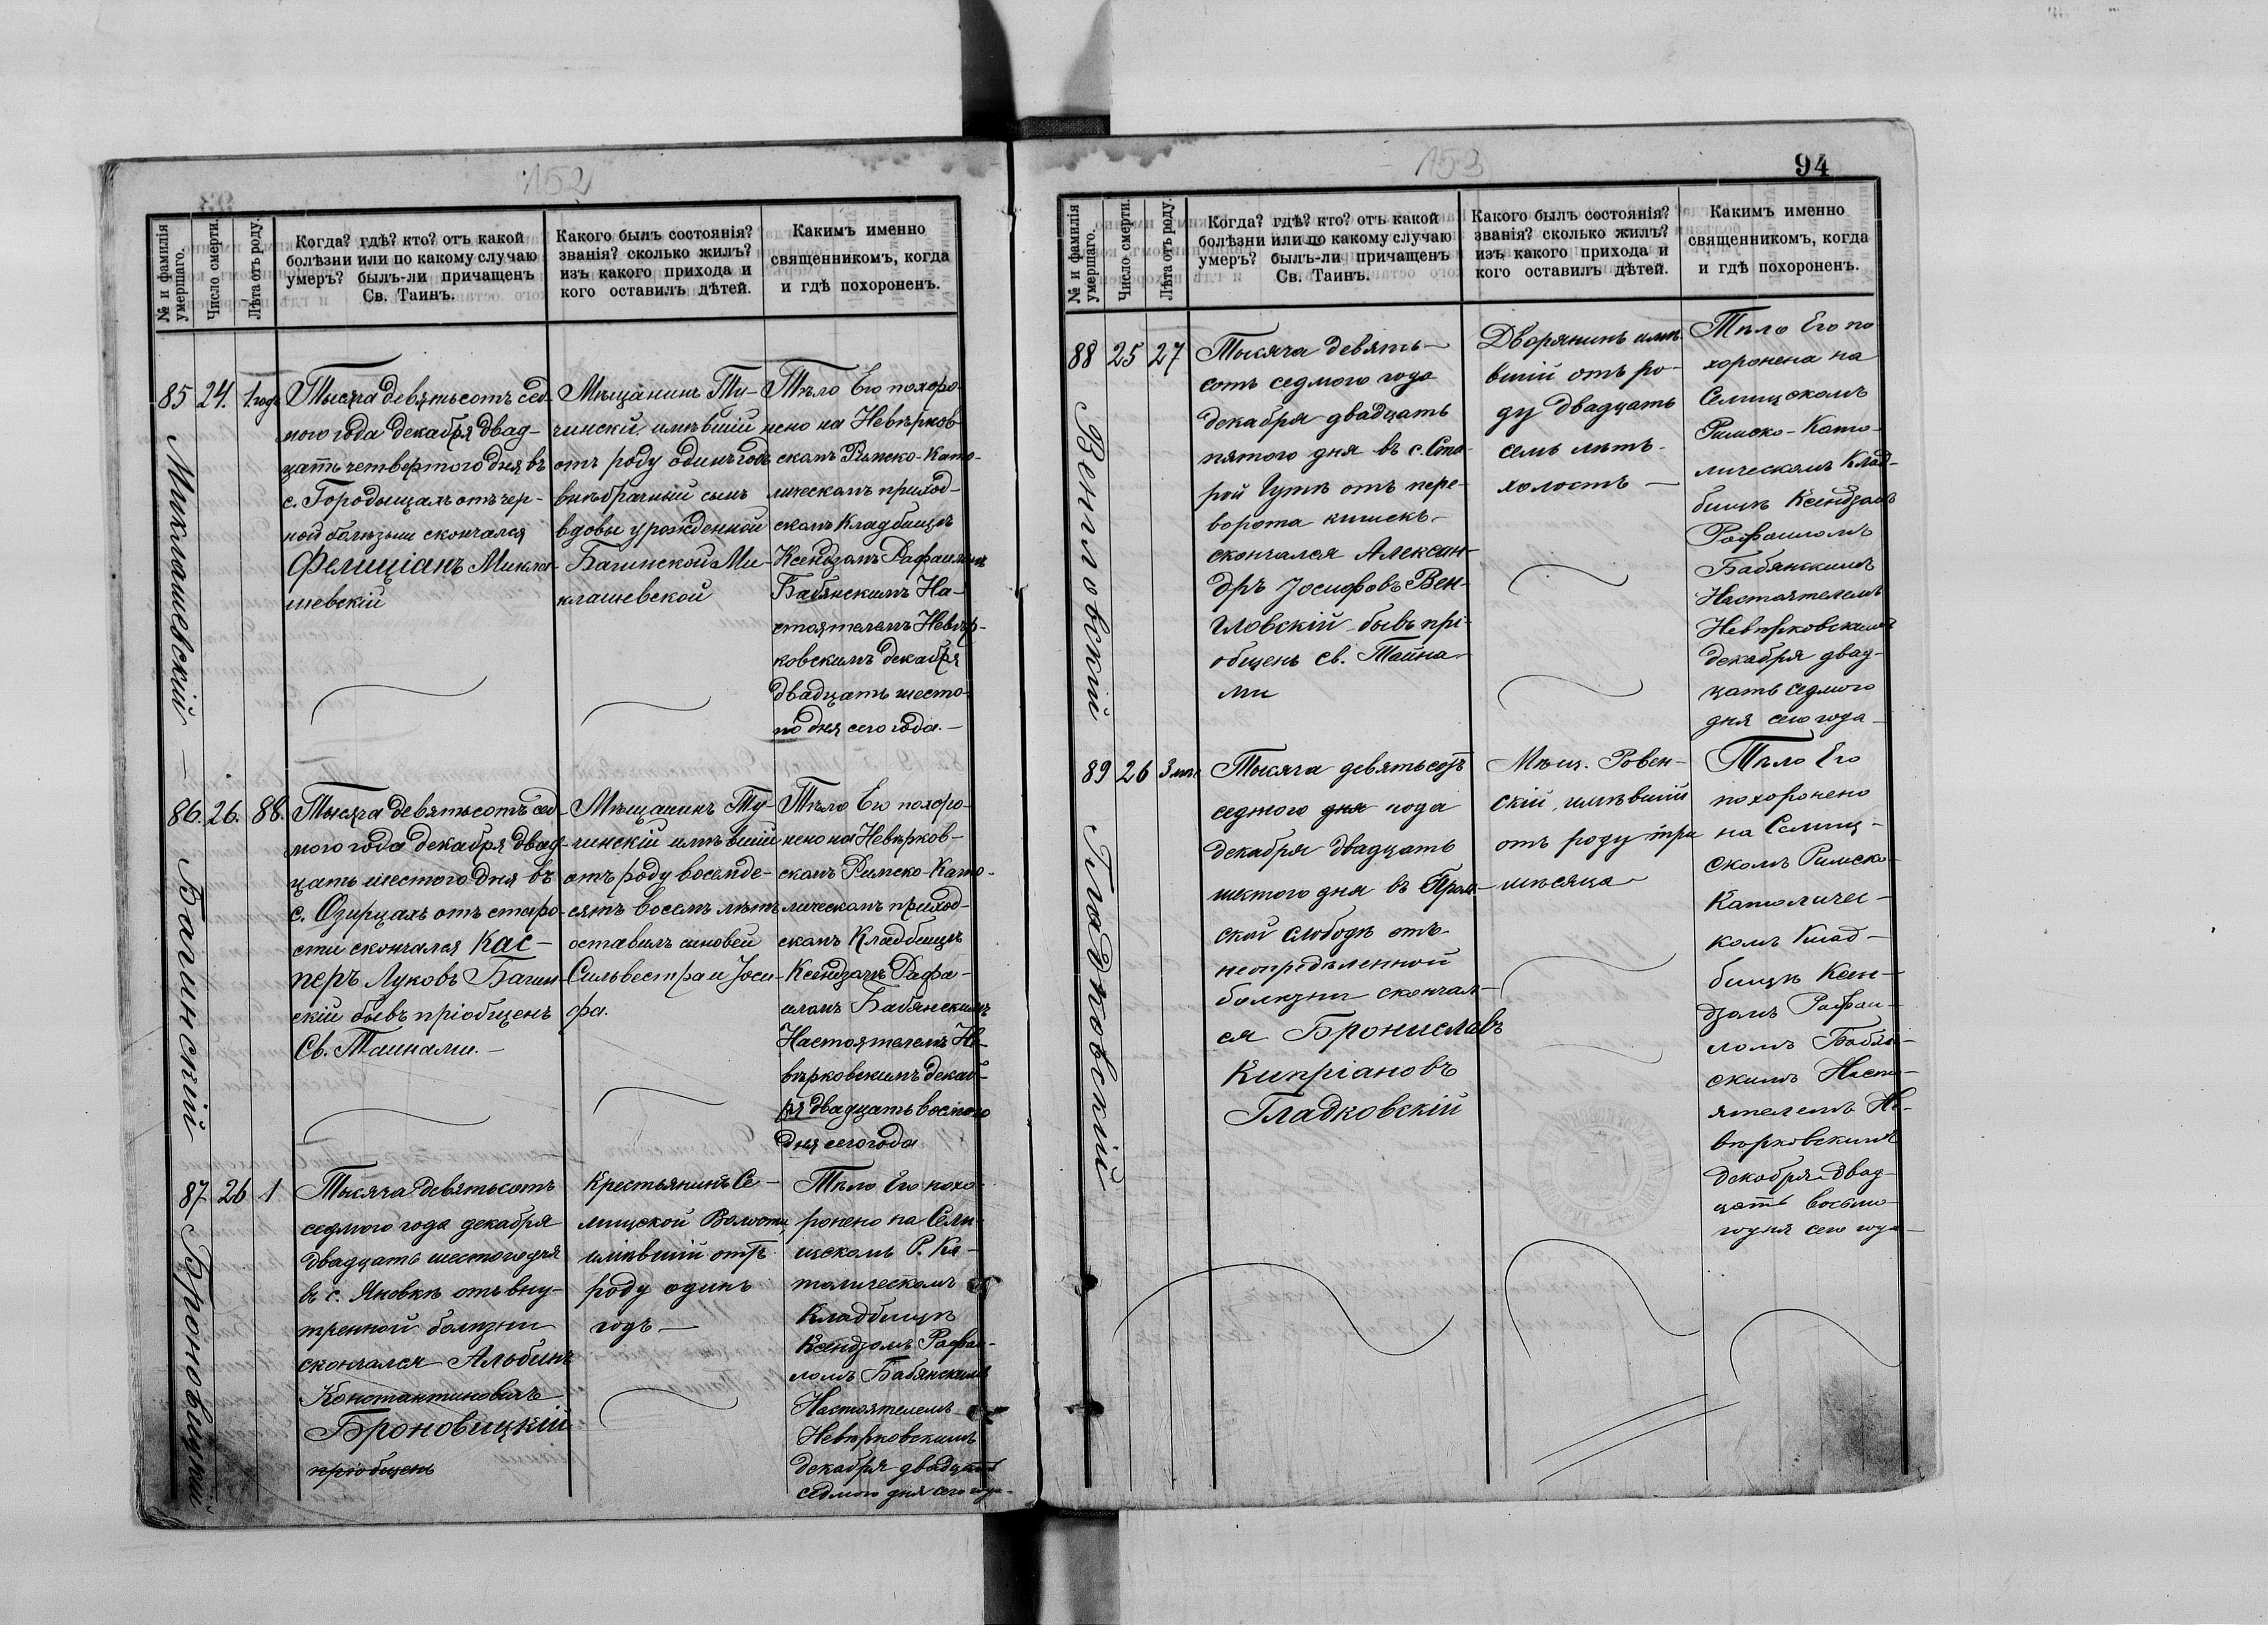 152
№ и фамилія
умершаго.
Число смерти.
Лѣта отъ роду.
Когда? гдѣ? кто? отъ какой
болѣзни или по какому случаю
умеръ? былъ-ли причащенъ
Св. Таинъ.
Какого былъ состоянія?
званія? сколько жилъ?
изъ какого прихода и
кого оставилъ дѣтей.
Какимъ именно
священникомъ, когда
и гдѣ похороненъ.
85
Миклашевскій
24.
1. годъ
Тысяча девятьсотъ сед-
мого года декабря двад-
цать четвертого дня въ
с. Городыщахъ отъ чер-
ной болѣзни скончался
Фелиціанъ Микла-
шевскій
Мѣщанинъ Ту-
чинскій имѣвшій
отъ роду одинъ годъ
внѣбрачный сынъ
вдовы урожденной
Багинской Ми-
клашевской
Тѣло Его похоро-
нено на Невѣрков-
скомъ Римско-Като-
лическомъ приход-
скомъ Кладбищѣ
Ксендзомъ Рафаиломъ
Бабянскимъ На-
стоятелемъ Невѣр-
ковскимъ декабря
двадцать шесто-
го дня сего года.
86.
Багинскій
26.
88.
Тысяча девятьсотъ сед-
мого года декабря двад-
цать шестого дня въ
с. Озирцахъ отъ старо-
сти скончался Кас-
перъ Луковъ Багин-
скій бывъ пріобщенъ
Св. Таинами.
Мѣщанинъ Ту-
чинскій имѣвшій
отъ роду восемде-
сятъ восемъ лѣтъ
оставилъ сыновей
Сильвестра и Іоси-
фа.
Тѣло Его похоро-
нено на Невѣрков-
скомъ Римско-Като-
лическомъ приход-
скомъ Кладбищѣ
Ксендзомъ Рафа-
иломъ Бабянскимъ
Настоятелемъ Не-
вѣрковскимъ декаб-
ря двадцать восьмого
дня сего года
87
Броновицкій
26
1
Тысяча девятьсотъ
седмого года декабря
двадцать шестого дня
въ с. Яновкѣ отъ вну-
тренной болѣзни
скончался Альбинъ
Константиновичъ
Броновицкій
пріобщенъ
Крестьянинъ Се-
лищской Волости,
имѣвшій отъ
роду одинъ
годъ
Тѣло Его похо-
ронено на Сели-
щскомъ Р. Ка-
толическомъ
Кладбищѣ
Ксендзомъ Рафаи-
ломъ Бабянскимъ
Настоятелемъ
Невѣрковскимъ
декабря двадцать
седмого дня сего года
153
94
№ и фамилія
умершаго.
Число смерти.
Лѣта отъ роду.
Когда? гдѣ? кто? отъ какой
болѣзни или по какому случаю
умеръ? былъ-ли причащенъ
Св. Таинъ.
Какого былъ состоянія?
званія? сколько жилъ?
изъ какого прихода и
кого оставилъ дѣтей.
Какимъ именно
священникомъ, когда
и гдѣ похороненъ.
88
Венгловскій
25
27
Тысяча девять-
сотъ седмого года
декабря двадцать
пятого дня въ с. Ста-
рой Гутѣ отъ пере-
ворота кишекъ
скончался Алексан-
дръ Іосифовъ Вен-
гловскій бывъ прі-
общенъ св. Тайна-
ми
Дворянинъ имѣ-
вшій отъ ро-
ду двадцать
семь лѣтъ
холостъ
Тѣло Его по
хоронена на
Селищскомъ
Римско-Като-
лическомъ Клад-
бищѣ Ксендзомъ
Рафаиломъ
Бабянскимъ
Настоятелемъ
Невѣрковскимъ
декабря двад-
цать седмого
дня сего года
89
Гладковскій
26
3 мѣс.
Тысяча девятьсотъ
седмого дня года
декабря двадцать
шестого дня въ
ской слободѣ отъ
неопредѣленной
болѣзни скончал-
ся Брониславъ
Кипріановъ
Гладковскій
Мѣщ. Ровен-
скій, имѣвшій
отъ роду три
мѣсяца
Тѣло Его
похоронено
на Селищ-
скомъ Римско
Католичес-
комъ Клад-
бищѣ Ксен-
дзомъ Рафаи-
ломъ Бабян-
скимъ Насто-
ятелемъ Не-
вѣрковскимъ
декабря двад-
цать восьмо-
го дня сего года